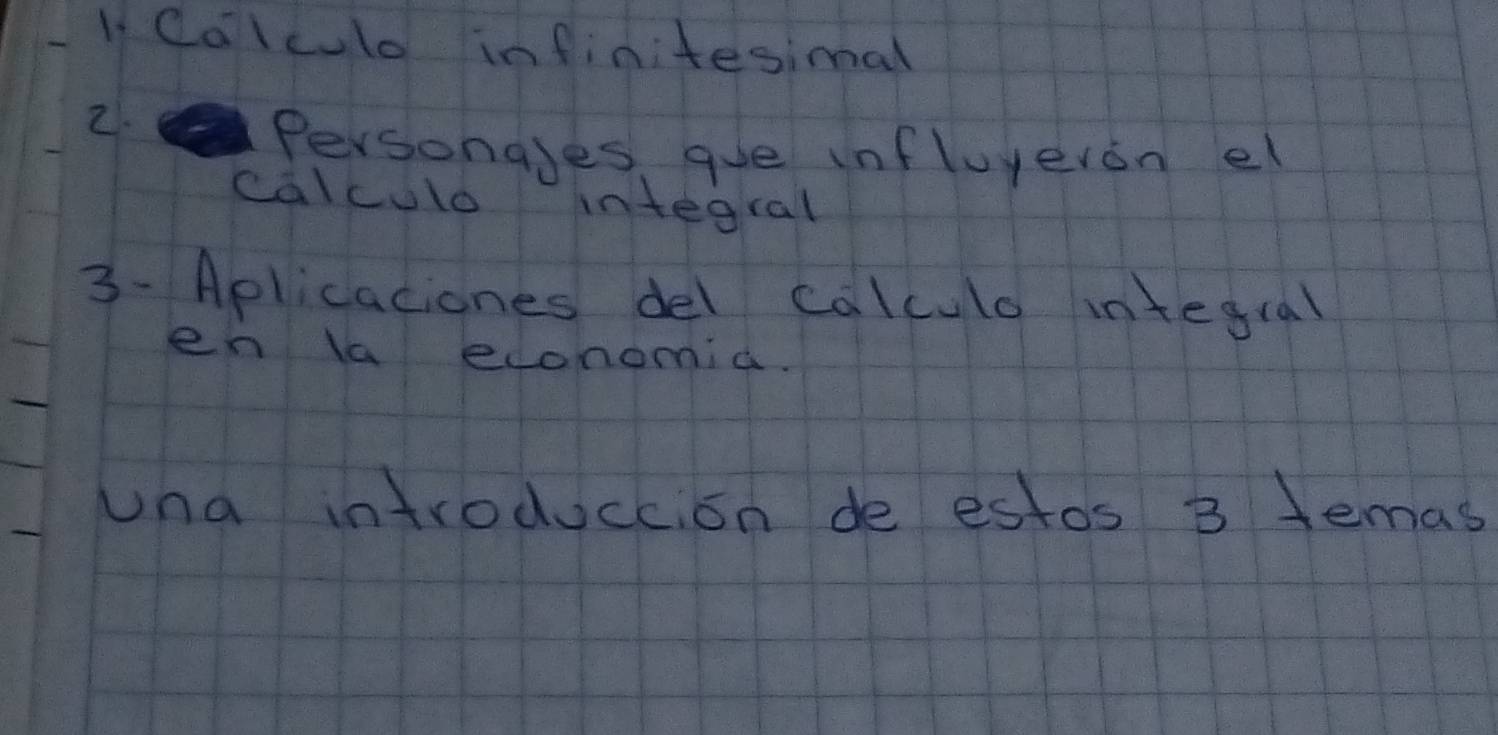 1. Cálculo infinitesimal
2. Personajes que influyerón el
cálculo integral
3- Aplicaciones del cálculo integral
en la economia.
una introducción de estos 3 temas